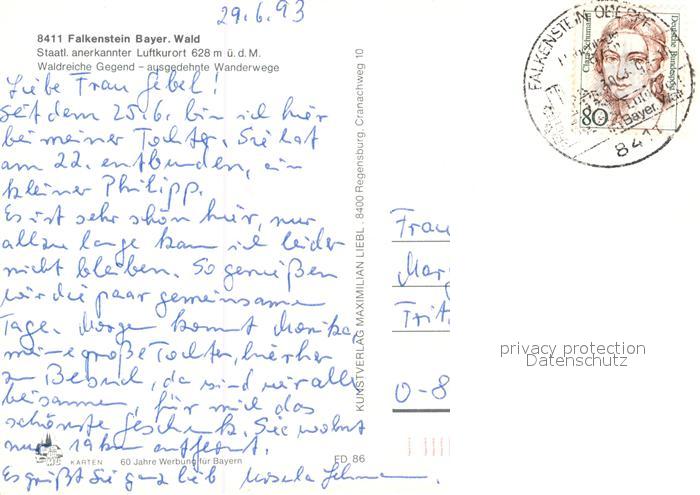 29.6.93
8411 Falkenstein Bayer. Wald
Staatl. anerkannter Luftkurort 628 m ü. d. M.
Waldreiche Gegend – ausgedehnte Wanderwege
Liebe Frau Gebel!
Seit dem 25.6. bin ich hier
bei meiner Tochter. Sie hat
am 22. entbunden, ein
kleiner Philipp.
Es ist sehr schön hier, nur
allzu lange kann ich leider
nicht bleiben. So genießen
wir die paar gemeinsamen
Tage. Morgen kommt Monika,
meine große Tochter, hierher
zu Besuch, da sind wir alle
beisammen, für mich das
schönste Geschenk. Sie wohnt
nur 19 km entfernt.
Es grüßt Sie ganz lieb
KARTEN
60 Jahre Werbung für Bayern
FD 86
KUNSTVERLAG MAXIMILIAN LIEBL . 8400 Regensburg, Cranachweg 10
FALKENSTEIN, OBERPF
Clara Schumann
Deutsche Bundespost
80
Bayer.
8411
Frau
Fritz
O-8
privacy protection
Datenschutz